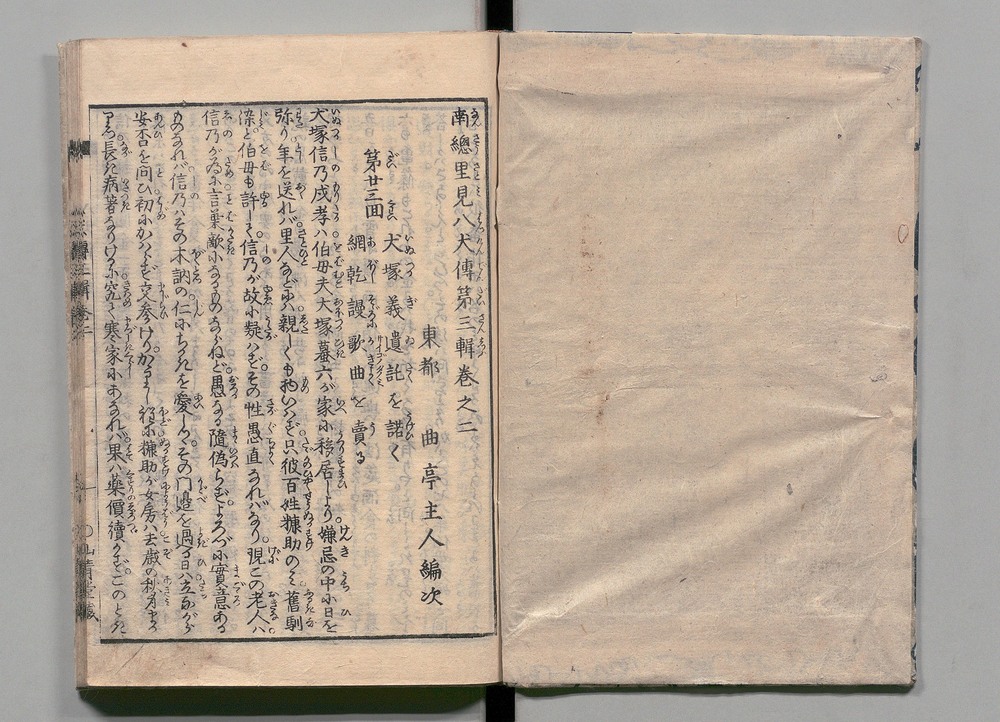 南總里見八犬傳第三輯巻之二
東都 曲亭主人編次
第廿三回
犬塚義遺託を諾く
網乾謾歌曲を賣る
犬塚信乃戍孝ハ伯母夫大塚蟇六が家に移居しより嫌忌の中に日を
弥り年を送れバ里人などにハ親しくも物いハず只彼百姓糠助のミ舊馴
染と伯母も許して信乃が故に疑ハずその性愚直なれバなり現この老人ハ
信乃が為に言葉敵になるものならねど愚なる隨偽らずよろづに實意ある
ものなれバ信乃ハその木訥の仁にちかきを愛しつゝその門邉を過る日ハ立ながら
安否を問ひ初にかハらず交参けりかゝりし程に糠助が女房ハ去歳の秋
長き病著なりけるに究て寒家にあなれバ果ハ藥價續かずこのとき